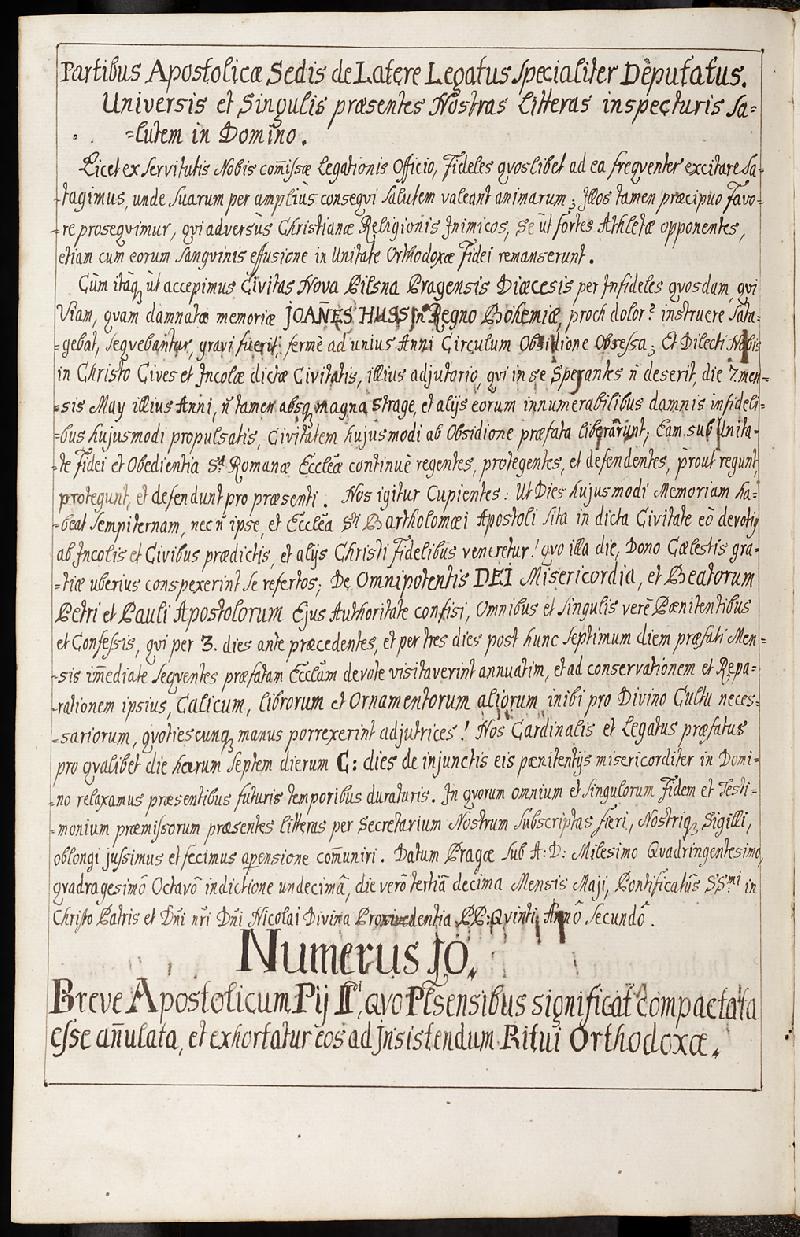 Partibus Apostolicæ Sedis de Latere Legatus specialiter Deputatus.
Universis et Singulis præsentes Nostras Litteras inspecturis Sa=
=lutem in Domino.
Licet ex servitutis Nobis com̃issæ Legationis Officio, Fideles quoslibet ad ea frequenter excitare Sa-
-tagimus, unde suarum per amplius consequi salutem valeant animarum; Illos tamen præcipuo favo-
-re prosequimur, qui adversùs Christianæ Religionis Inimicos, se ut fortes Athletæ opponentes,
etiam cum eorum sanguinis effusione in Unitate Orthodoxæ Fidei remanserunt.
Cùm itaq, ut accepimus Civitas Nova Pilsna Pragensis Diæcesis per Infideles quosdam, qui
Viam, quam damnatæ memoriæ JOAN̄ES HUSS in Regno Bohemiæ, proch dolor! instruere sata=
=gebat, sequebantur, gravi fuerit, fermè ad unius Anni Circulum Obsidione Obsessa; Et Dilecti Nobis
in Christo Cives et Incolæ dictæ Civitatis, illius adjutorio, qui in se Sperantes n̄ deserit, die 7. men=
=sis May illius Anni, n̄ tamen absq, magna strage, et alijs eorum innumerabilibus damnis infideli-
-bus hujusmodi propulsatis, Civitatem hujusmodi ab Obsidione præfata liberârunt, Eam sub Unita-
-te Fidei et Obedientia Stæ Romanæ Eccleæ continuè regentes, protegentes, et defendentes, prout regunt,
protegunt, et defendunt pro præsenti. Nos igitur Cupientes. Ut Dies hujusmodi Memoriam ha-
-beat sempiternam, nec n̄ ipse, et Ecclea Sti Bartholomæi Apostoli sita in dicta Civitate eò devotiq
ab Incolis et Civibus prædictis, et alijs Christi Fidelibus veneretur! quo illa die, Dono Cælestis gra-
-tiæ uberius conspexerint se refertos; De Omnipotentis DEI Misericordia, et Beatorum
Petri et Pauli Apostolorum Ejus Authoritate confisi, Omnibus et singulis verè Pænitentibus
et Confessis, qui per 3. dies ante præcedentes, et per tres dies post hunc septimum diem præfati Men=
-sis im̄ediate sequentes præfatam Ecclam devote visitaverint annuatim, et ad conservationem et Repa-
-rationem ipsius, Calicum, librorum et Ornamentorum aliorum inibi pro Divino Cultu neces-
-sariorum, quotiescunq, manus porrexerint adjutrices! Nos Cardinalis et Legatus præfatus
pro qualibet die harum septem dierum C: dies de injunctis eis pænitentijs misericorditer in Domi-
-no relaxamus præsentibus futuris temporibus duraturis. In quorum omnium et singulorum Fidem et Testi-
-monium præmissorum præsentes litteras per Secretarium Nostrum subscriptas fieri, Nostriq, Sigilli,
oblongi jussimus et fecimus apensione com̄uniri. Datum Pragæ sub A: D: Milesimo Quadringentesimo
quadragesimô Octavô indictione undecimâ, die verò tertiâ decima Mensis Maji, Pontificatûs SSmi in
Christo Patris et Dn̄i nr̄i Dn̄i Nicolai Divina Providentia PP: Quinti Annô Secundô.
Numerus 10.
Breve Apostolicum Pij II, quo Plsensibus significat compactata
esse an̄ulata, et exhortatur eos ad Insistendum Ritui Orthodoxæ.